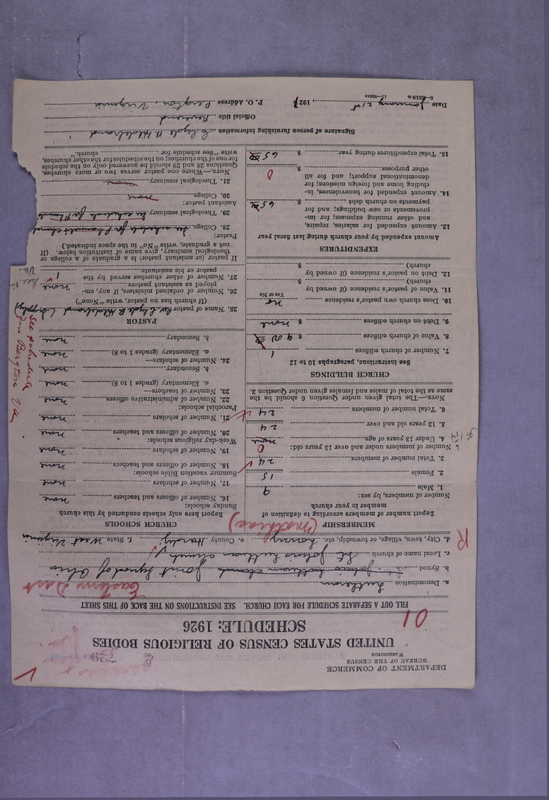 DEPARTMENT OF COMMERCE
BUREAU OF THE CENSUS
WASHINGTON
UNITED STATES CENSUS OF RELIGIOUS BODIES
SCHEDULE: 1926
01
FILL OUT A SEPARATE SCHEDULE FOR EACH CHURCH. SEE INSTRUCTIONS ON THE BACK OF THIS SHEET
a. Denomination Lutheran
b. Synod Joint Synod of Ohio
c. Local name of church St. Johns Lutheran church
d. City, town, village, or township, etc. e. County Hardy f. State West Virginia
R
MEMBERSHIP
Report number of members according to definition of
member in your church
Number of members, by sex:
1. Male 9
2. Female 15
3. Total number of members 24
Number of members under and over 13 years old:
4. Under 13 years of age none
5. 13 years old and over 24
6. Total number of members 24
NOTE.—The total given under Question 6 should be the
same as the total of males and females given under Question 3.
CHURCH BUILDINGS
See instructions, paragraphs 10 to 12
7. Number of church edifices 1
8. Value of church edifices $
9. Debt on church edifices $ none
10. Does church own pastor's residence no
Yes or No
11. Value of pastor's residence (if owned by
church) $
12. Debt on pastor's residence (if owned by
church) $
EXPENDITURES
Amount expended by your church during last fiscal year
13. Amount expended for salaries, repairs,
and other running expenses; for im-
provements or new buildings; and for
payments on church debt $ 65.00
14. Amount expended for benevolences, in-
cluding home and foreign missions; for
denominational support; and for all
other purposes $ 0
15. Total expenditures during year $ 65.00
CHURCH SCHOOLS
Report here only schools conducted by this church
Sunday schools:
16. Number of officers and teachers none
17. Number of scholars none
Summer vacation Bible schools:
18. Number of officers and teachers none
19. Number of scholars none
Week-day religious schools:
20. Number of officers and teachers none
21. Number of scholars none
Parochial schools:
22. Number of administrative officers none
23. Number of teachers—
a. Elementary (grades 1 to 8) none
b. Secondary none
24. Number of scholars—
a. Elementary (grades 1 to 8) none
b. Secondary none
PASTOR
25. Name of pastor Rev. Clyde B. Hildebrand
(If church has no pastor, write "None")
26. Number of ordained ministers, if any, em-
ployed as assistant pastors none
27. Number of other churches served by the
pastor or his assistants
If pastor or assistant pastor is a graduate of college or
theological seminary, give name of institution. (If
not a graduate, write "No" in the space indicated.)
Pastor:
28. College
29. Theological seminary
Assistant pastor:
30. College none
31. Theological seminary none
NOTE.—Where one pastor serves two or more churches,
Questions 28 and 29 should be answered only on the schedule
for one of the churches; on the schedules for the other churches,
write "See schedule for church."
Signature of person furnishing information Clyde B. Hildebrand
Official title Reverend
P. O. Address Virginia
Date January 21st, 1927